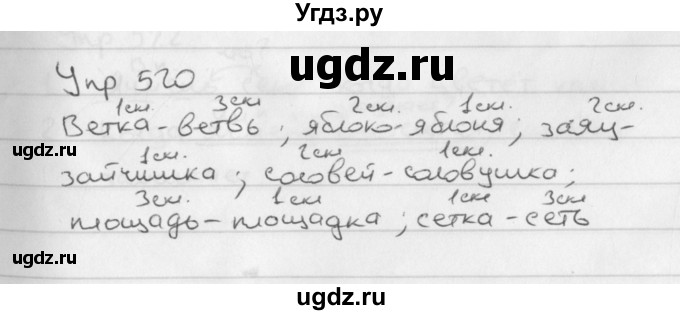 Угдз.ру
ugdz.ru
Упр 520
1ск. 3ск 2ск. 1ск. 2ск.
Ветка - ветвь ; яблоко - яблоня ; заяц -
1ск. 2ск 1ск.
зайчишка ; соловей - соловушка ;
3ск. 1ск 1ск 3ск
площадь - площадка ; сетка - сеть
ugdz.ru
ugdz.ru
ugdz.ru
ugdz.ru